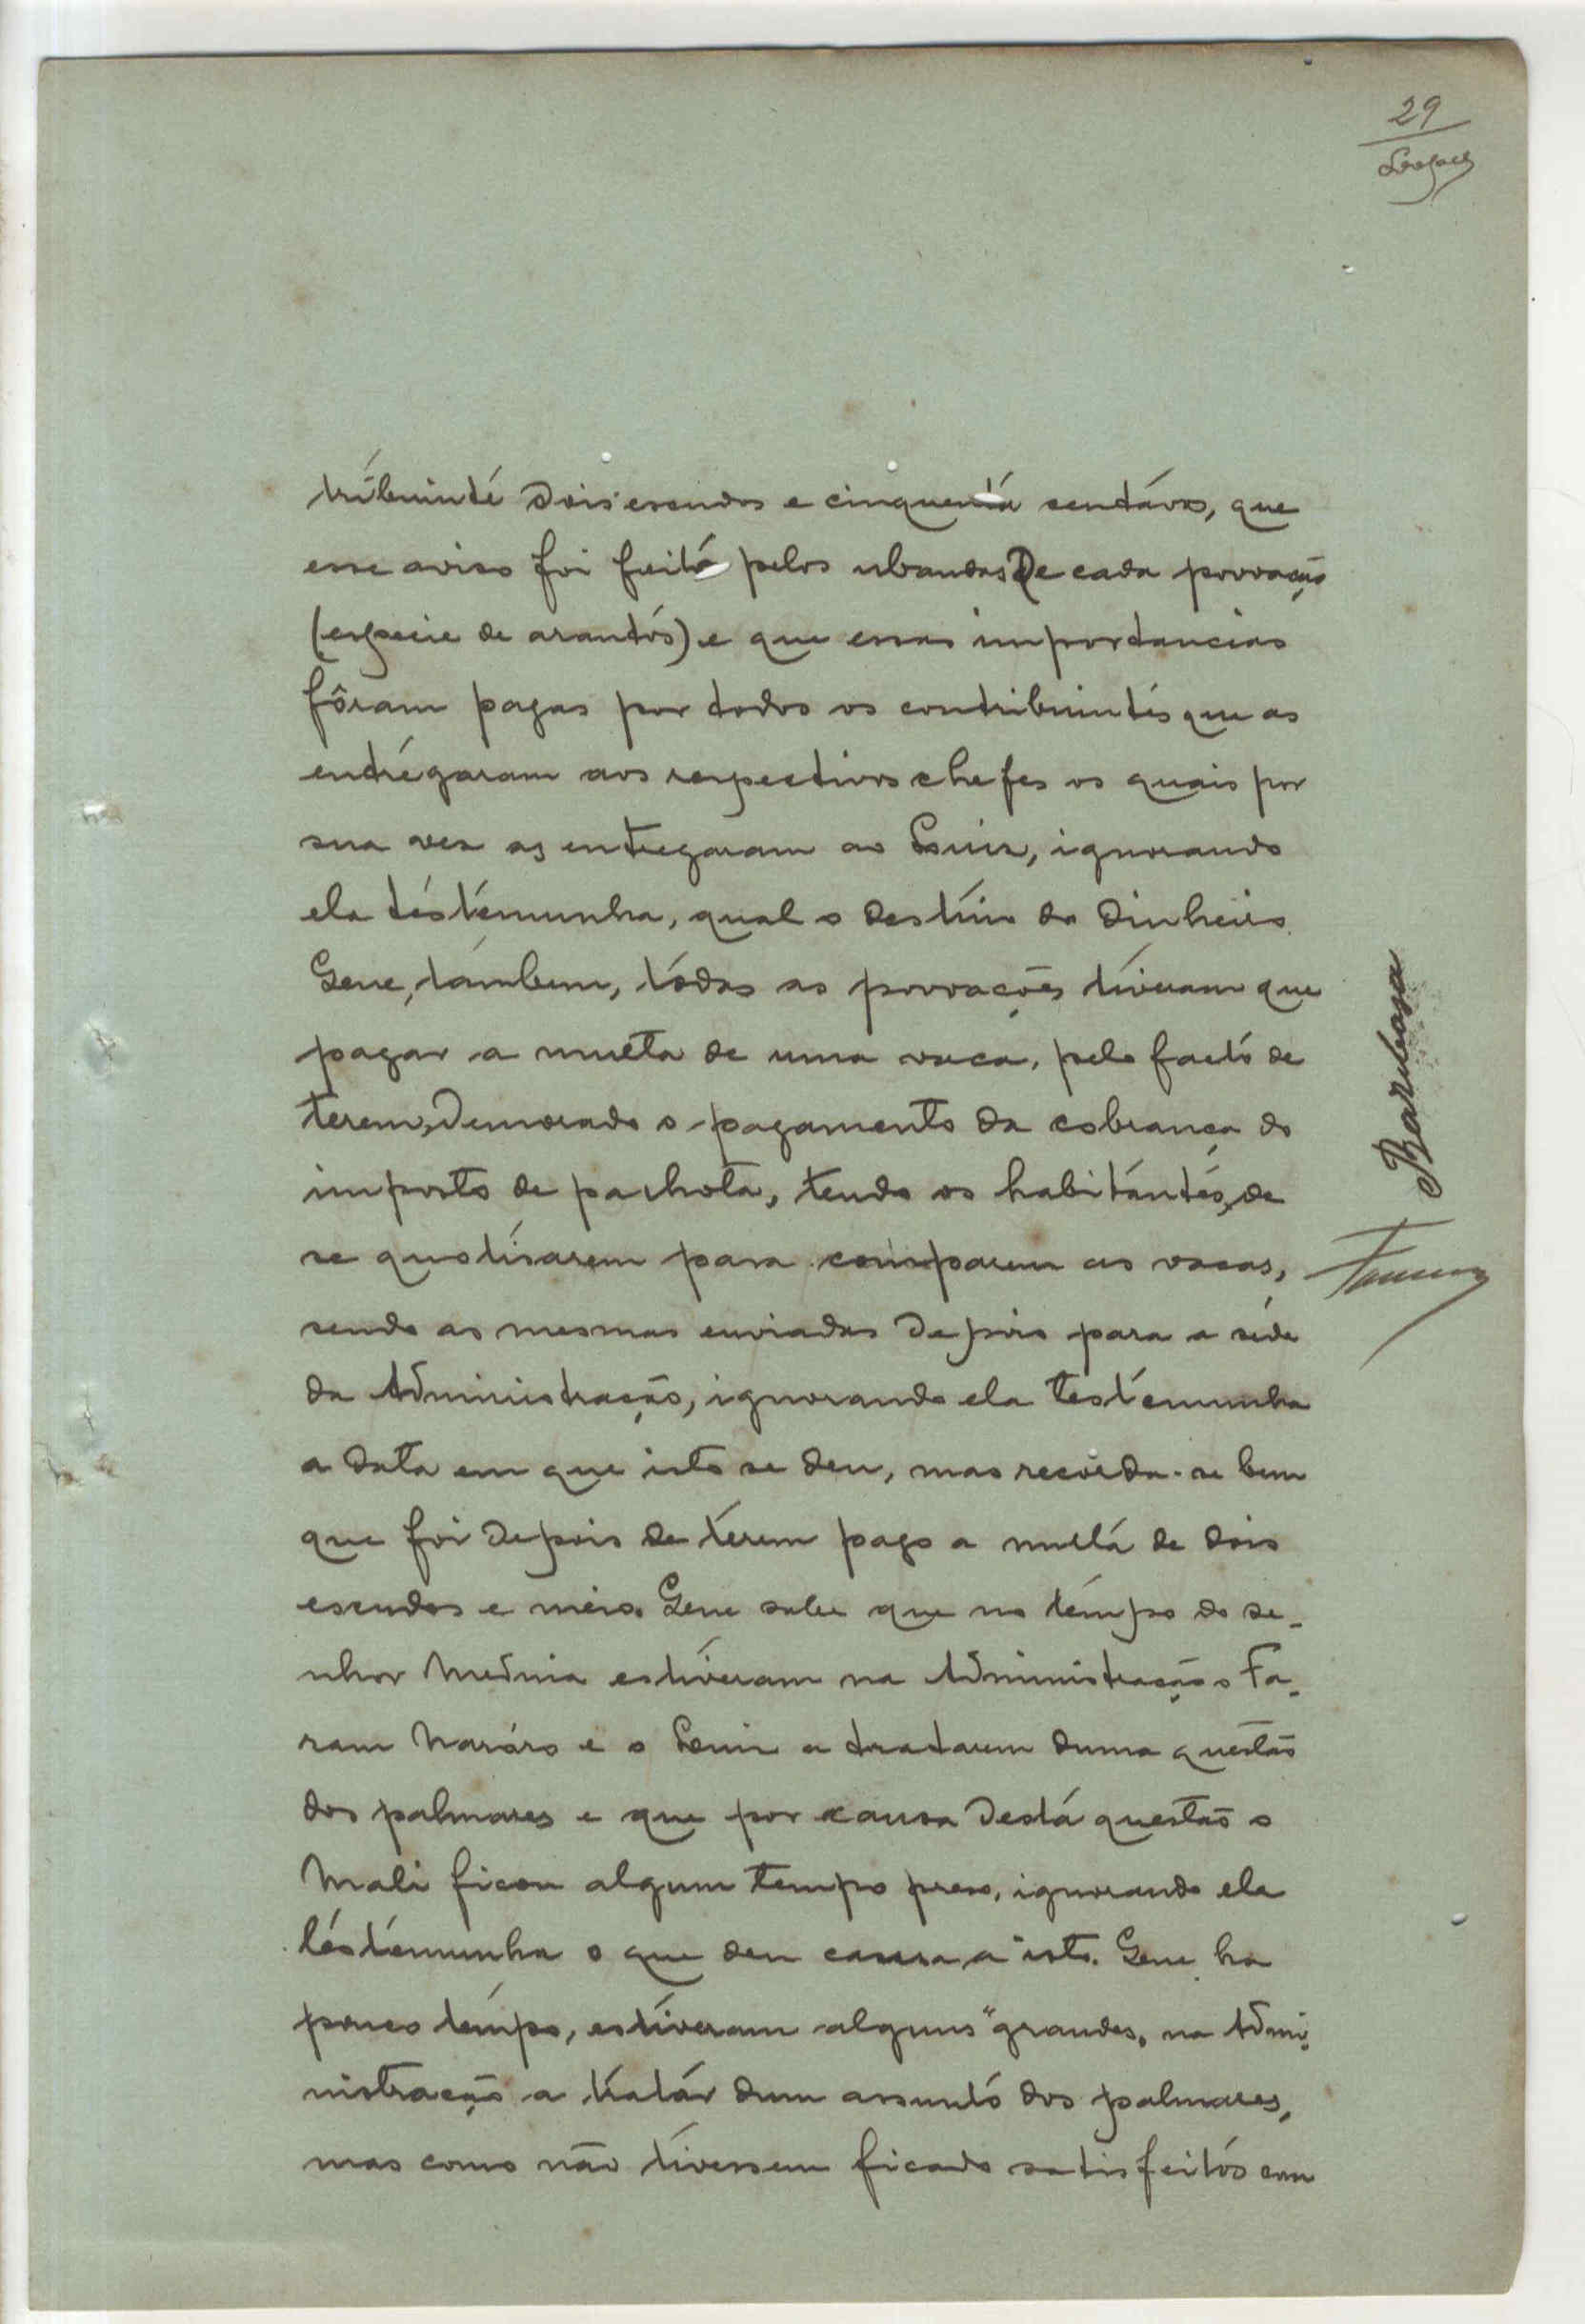 29
tribuinte dois escudos e cinquenta centávos, que
esse aviso foi feito pelos ubandas de cada povoação
(especie de arautos) e que essas importancias
fôram pagas por todos os contribuintes que as
entregaram aos respectivos chefes os quais por
sua vez as entregaram ao Luiz, ignorando
ela testemunha, qual o destino do dinheiro.
Que, tambem, todas as povoações tiveram que
pagar a multa de uma vaca, pelo facto de
terem, demorado o pagamento da cobrança do
imposto de palhota, tendo os habitantes, de
se quotisarem para comparem as vacas,
sendo as mesmas enviadas depois para a séde
da Administração, ignorando ela testemunha
a data em que isto se deu, mas recorda-se bem
que foi depois de terem pago a multa de dois
escudos e meio. Que sabe que no tempo do se-
nhor estiveram na Administração o Fa-
ram e o Luiz a tratarem duma questão
dos palmares e que por causa desta questão o
Mali ficou algum tempo preso, ignorando ela
testemunha o que deu causa a isto. Que ha
pouco tempo, estiveram alguns "grandes" na Admi-
nistração a tratár dum assunto dos palmares,
mas como não tivessem ficado satisfeitos com
Barbosa